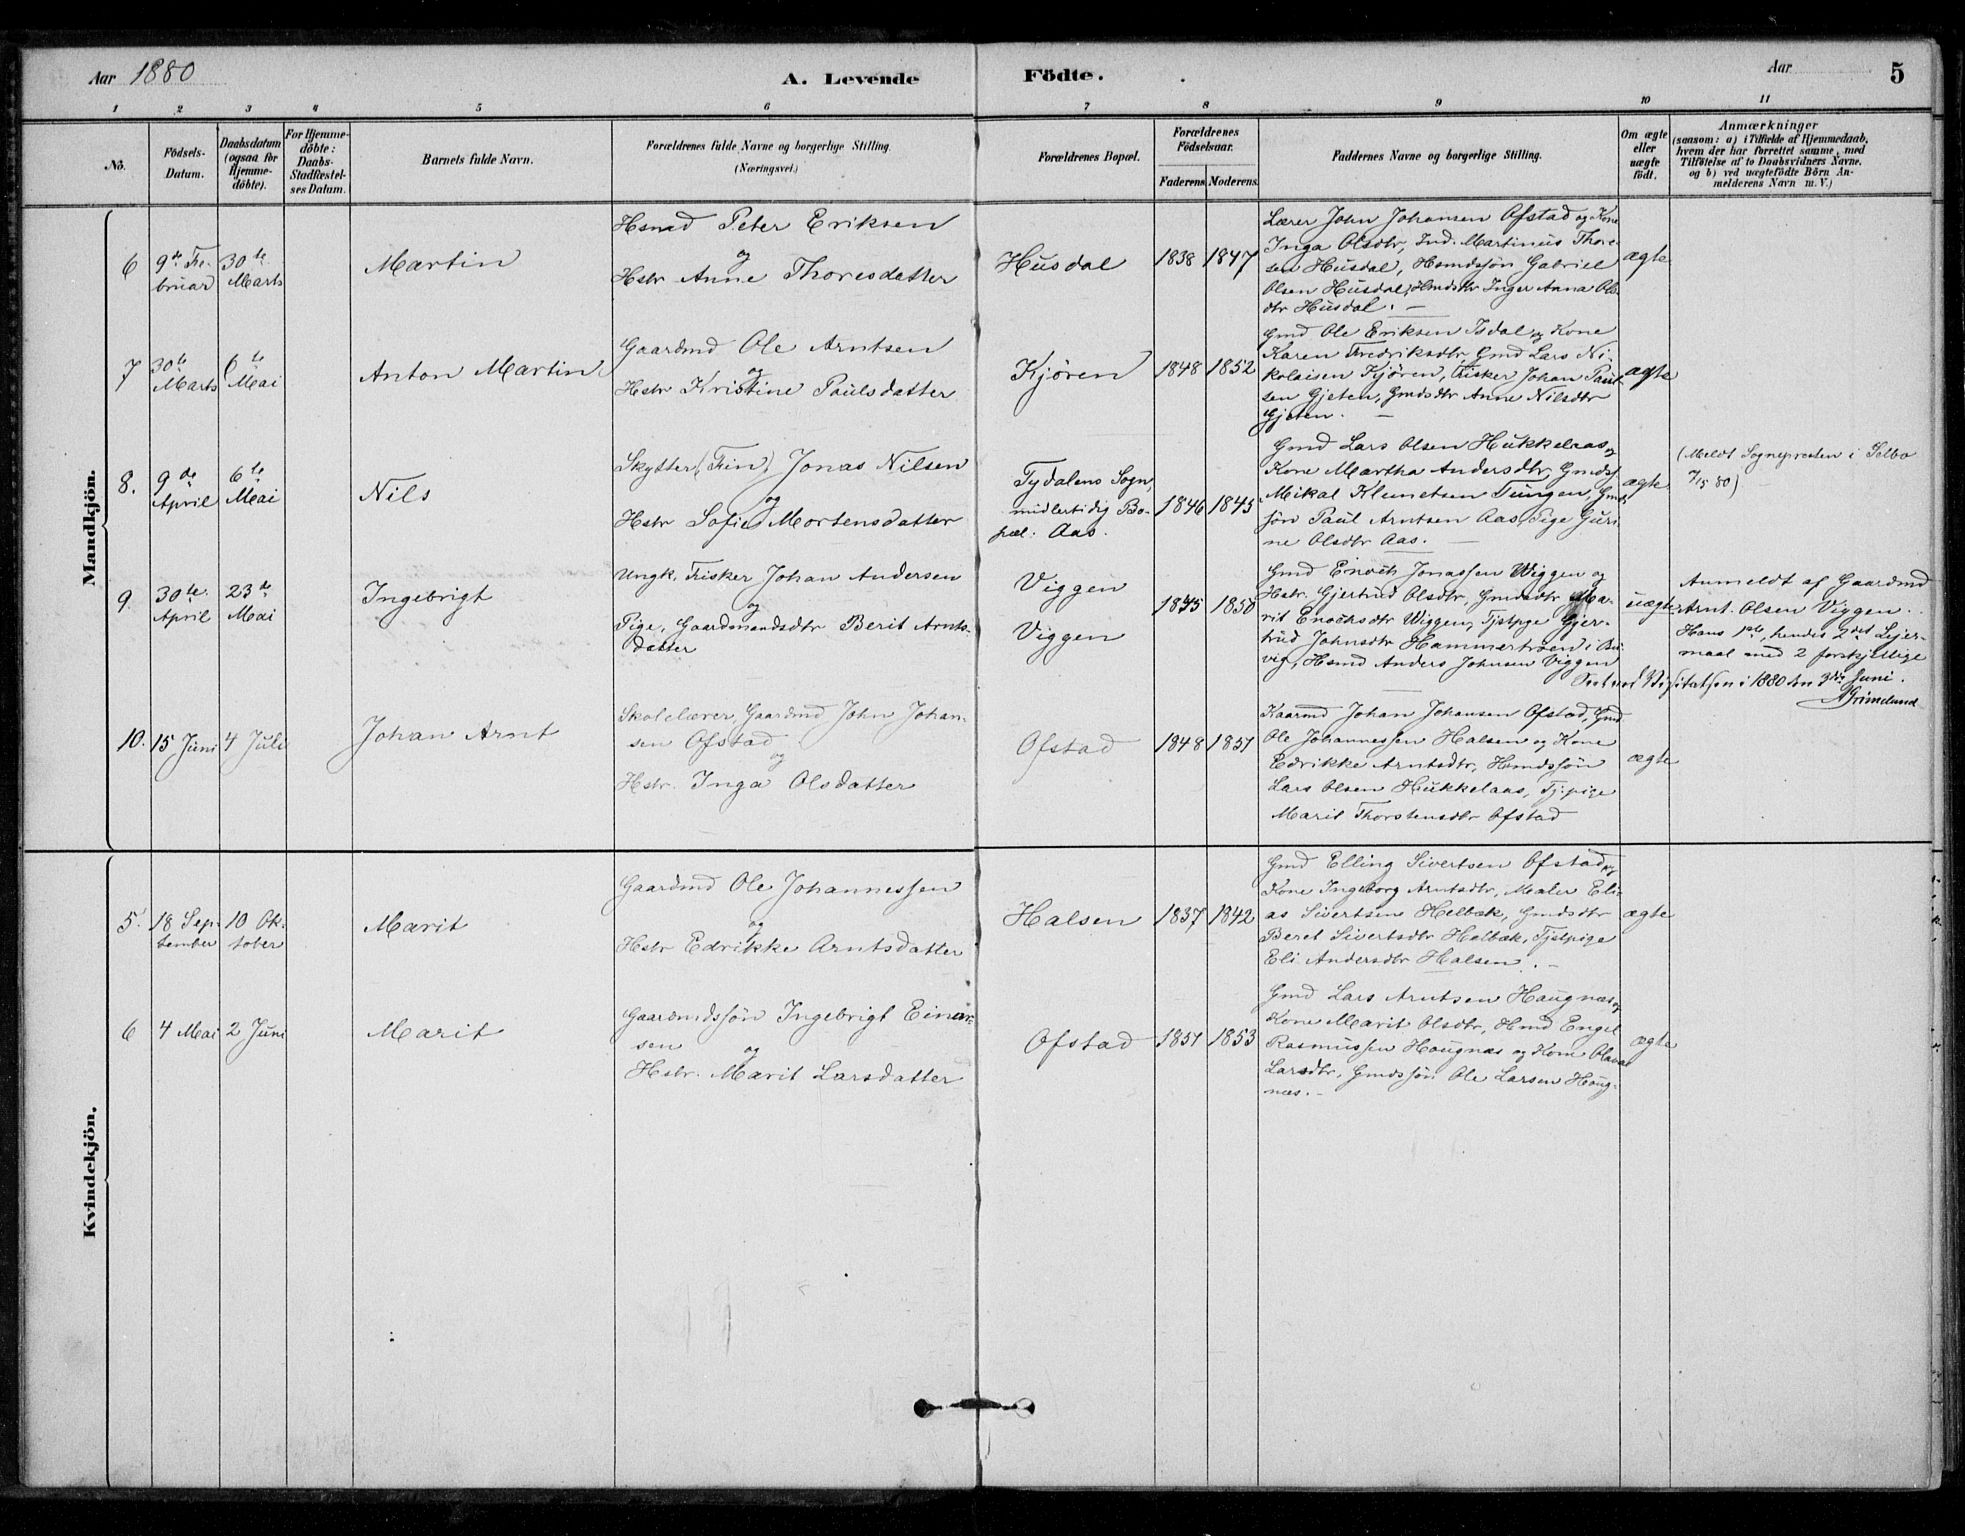 Aar 1880
A. Levende Födte.
Aar
5
1 2 3 4 5 6 7 8 9 10 11
No.
Födsels-
Datum.
Daabsdatum
(ogsaa for
Hjemme-
döbte).
For Hjemme-
döbte:
Daabs-
Stadfæstel-
ses Datum.
Barnets fulde Navn.
Forældrenes fulde Navne og borgerlige Stilling.
(Næringsvei.)
Forældrenes Bopæl.
Forældrenes
Födselsaar.
Faderens Moderens
Faddernes Navne og borgerlige Stilling.
Om ægte
eller
uægte
födt.
Anmærkninger
(saasom: a) i Tilfælde af Hjemmedaab,
hvem der har forrettet samme, med
Tilföielse af to Daabsvidners Navne.
og b) ved uægtefödte Börn An-
melderens Navn m. V.)
Mandkjön.
6
9de Fe-
bruar
30te
Marts
Martin
Hsmd Peter Eriksen
og
Hstr Anne Thoresdatter
Husdal
1838 1847
Lærer John Johansen Ofstad og Kone
Inga Olsdtr, Ind. Martinus Thore-
sen Husdal, Hsmdssjön Gabriel
Olsen Husdal, Hmdsdtr Inger Anna Ols-
dtr Husdal. —
ægte
7
30te
Marts
6te
Mai
Anton Martin
Gaardmd Ole Arntsen
og
Hstr Kristine Paulsdatter
Kjören
1848 1852
Gmd Ole Eriksen Isdal og Kone
Karen Fredriksdtr, Gmd Lars Ni-
kolaisen Kjören, Fisker Johan Paul-
sen Gjeten, Gmdsdtr Anne Nilsdtr
Gjeten. —
ægte
8.
9de
April
6te
Mai
Nils
Skytter (Fin) Jonas Nilsen
og
Hstr Sofie Mortensdatter
Tydalens Sogn,
midlertidig Bo-
pæl: Aas.
1846 1845
Gmd Lars Olsen Hukkelaas og
Kone Martha Andersdtr, Gmdss
Mikal Klemetsen Tungen, Gmds
sjön Paul Arntsen Aas, Pige Guri-
ne Olsdtr Aas. —
ægte
(Meldt Sognepresten i Selbo
7/5 80)
9.
30te
April
23de
Mai
Ingebrigt
Ungk. Fisker Johan Andersen
og
Pige, Gaardmandsdtr Berit Arnts-
datter
Viggen
Viggen
1845 1850
Gmd Enoch Jonassen Wiggen og
Hstr. Gjertrud Olsdtr, Gmdsdtr Ma-
rit Enochsdtr Wiggen, Tjstpge Gjer-
trud Johnsdtr Hammertröen i Bu-
vig, Hsmd Anders Johnsen Viggen
uægte
Anmeldt af Gaardmd
Arnt Olsen Viggen.
Hans 1ste, hendes 2det Lejer-
maal med 2 forskjellige
Seet ved Visitatsen i 1880 den 3die Juni.
AGrimelund
10.
15 Juni
4 Juli
Johan Arnt
Skolelærer, Gaardmd John Johan-
sen Ofstad
og
Hstr. Inga Olsdatter
Ofstad
1848 1857
Kaarmd Johan Johansen Ofstad, Gmd
Ole Johannessen Halsen og Kone
Edrikke Arntsdtr, Hsmdssjön
Lars Olsen Hukkelaas, Tj.pige
Marit Thorstensdtr Ofstad
ægte
Kvindekjön.
5.
18 Sep-
tember
10 Ok-
tober
Marit
Gaardmd Ole Johannessen
og
Hstr Edrikke Arntsdatter
Halsen
1837 1842
Gmd Elling Sivertsen Ofstad og
Kone Ingeborg Arntsdtr, Maler Eli-
as Sivertsen Helbæk, Gmdsdtr
Beret Sivertsdtr Helbæk, Tjstpige
Eli Andersdtr Halsen. —
ægte
6
4 Mai
2 Juni
Marit
Gaardmdssjön Ingebrigt Einar-
sen
og
Hstr. Marit Larsdatter
Ofstad
1857 1853
Gmd Lars Arntsen Haugnæs og
Kone Marit Olsdtr, Hmd Engel
Rasmussen Haugnæs og Kone Olava
Larsdtr, Gmdssjön Ole Larsen Haug-
næs. -
ægte